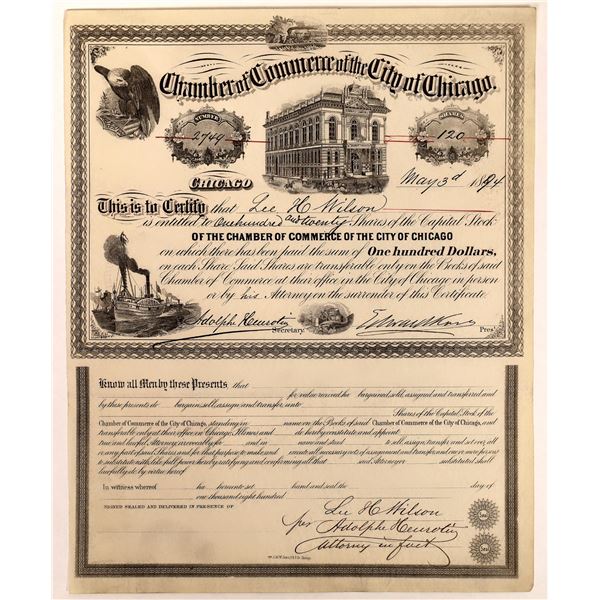 Chamber of Commerce of the City of Chicago.
NUMBER
2749
SHARES
120
CHICAGO
May 3d 1894
This is to Certify that Lee H Wilson
is entitled to One hundred and twenty Shares of the Capital Stock
OF THE CHAMBER OF COMMERCE OF THE CITY OF CHICAGO
on which there has been paid the sum of One hundred Dollars,
on each Share. Said Shares are transferable only on the Books of said
Chamber of Commerce at their office in the City of Chicago in person
or by his Attorney on the surrender of this Certificate.
Adolphe Heurotin
Secretary.
Pres't
Know all Men by these Presents that
for value received ha bargained, sold, assigned and transferred and
by these presents do bargain, sell, assign and transfer, unto
Shares of the Capital Stock of the
Chamber of Commerce of the City of Chicago, standing in name on the Books of said Chamber of Commerce of the City of Chicago, and
transferable only at their office in Chicago, Illinois and do hereby constitute and appoint
true and lawful Attorney irrevocably for and in name and stead to sell, assign, transfer and set over, all
or any part of said Shares and for that purpose to make and execute all necessary acts of assignment and transfer, and one or more persons
to substitute with like full power, hereby ratifying and confirming all that said Attorney or substitutes shall
lawfully do by virtue hereof.
In witness whereof ha hereunto set hand and seal the day of
one thousand eight hundred
SIGNED SEALED AND DELIVERED IN PRESENCE OF
Lee H Wilson
per Adolphe Heurotin
Attorney in fact
Seal
Seal